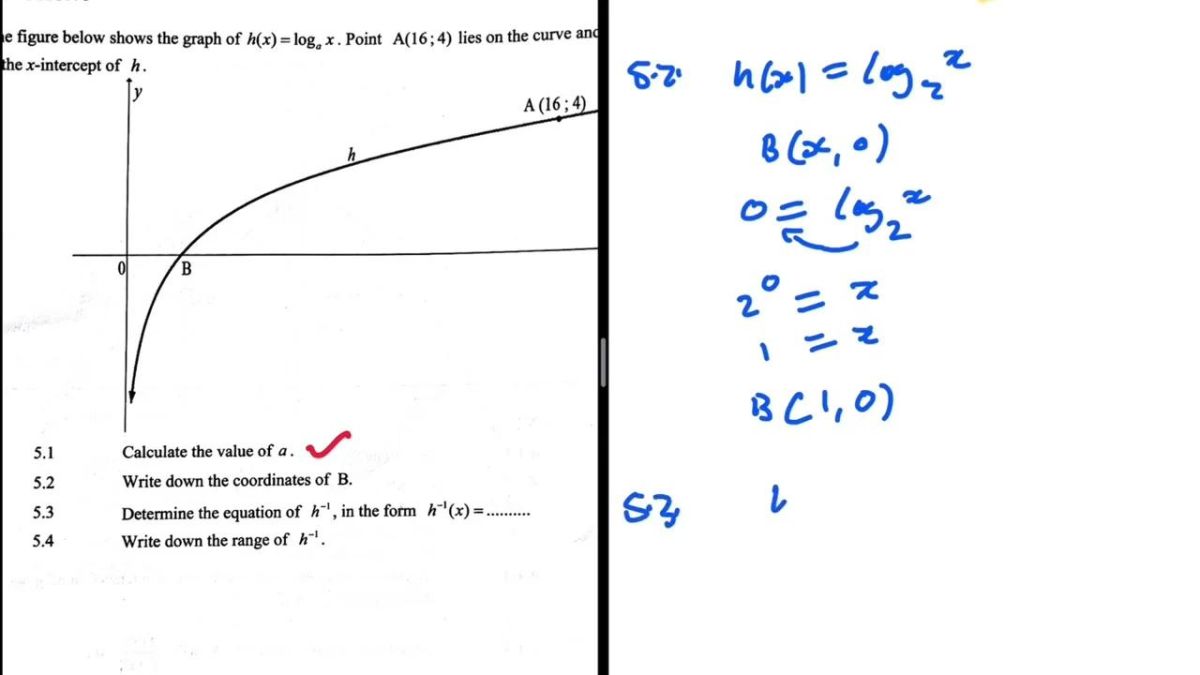 e figure below shows the graph of h(x) = logₐ x. Point A(16 ; 4) lies on the curve and
the x-intercept of h.
y
A (16 ; 4)
h
0
B
5.1 Calculate the value of a.
5.2 Write down the coordinates of B.
5.3 Determine the equation of h⁻¹, in the form h⁻¹(x) = ..........
5.4 Write down the range of h⁻¹.
5.2 h(x) = log₂ x
B(x, 0)
0 = log₂ x
2⁰ = x
1 = x
B(1, 0)
5.3